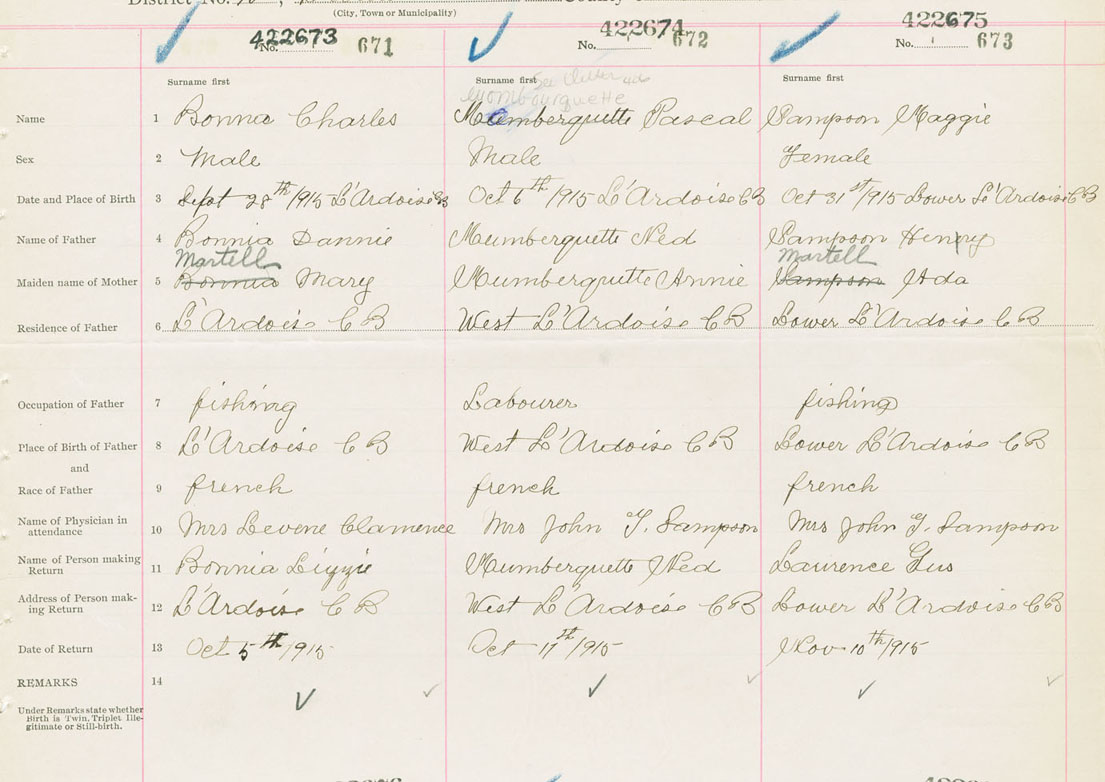 District No.
(City, Town or Municipality)
422673 422674 422675
No. 671 No. 672 No. 673
Surname first Surname first Surname first
See letter
Mombourquette
Name 1 Bonna Charles Mumberguette Pascal Sampson Maggie
Sex 2 Male Male Female
Date and Place of Birth 3 Sept 28th/1915 L'Ardoise CB Oct 6th/1915 L'Ardoise CB Oct 31st/1915 Lower L'Ardoise CB
Name of Father 4 Bonnia Dannie Mumberguette Ned Sampson Henry
Martell Martell
Maiden name of Mother 5 Bonnia Mary Mumberguette Annie Sampson Ada
Residence of Father 6 L'Ardoise CB West L'Ardoise CB Lower L'Ardoise CB
Occupation of Father 7 fishing Labourer fishing
Place of Birth of Father 8 L'Ardoise CB West L'Ardoise CB Lower L'Ardoise CB
and
Race of Father 9 french french french
Name of Physician in
attendance 10 Mrs Levene Clamence Mrs John T. Sampson Mrs John T. Sampson
Name of Person making
Return 11 Bonnia Lizzie Mumberguette Ned Laurence Gus
Address of Person mak-
ing Return 12 L'Ardoise CB West L'Ardoise CB Lower L'Ardoise CB
Date of Return 13 Oct 5th/1915 Oct 11th/1915 Nov 10th/1915
REMARKS 14
Under Remarks state whether
Birth is Twin, Triplet Ille-
gitimate or Still-birth.